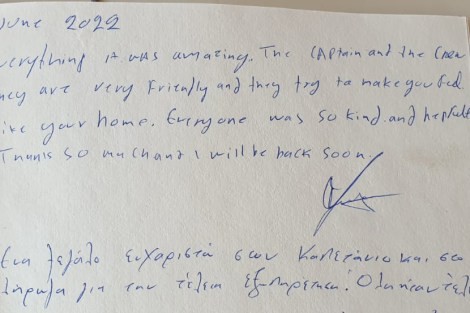 June 2022
verything it was amazing. The CAptain and the Crew
hey are very Friendly and they try to make you feel
ike your home. Everyone was so kind and helpfull
Thanks so much and i will be back soon
Ένα μεγάλο ευχαριστώ στον Καπετάνιο και στο
πλήρωμα για την τέλεια εξυπηρέτηση! Όλα ήταν τέλ